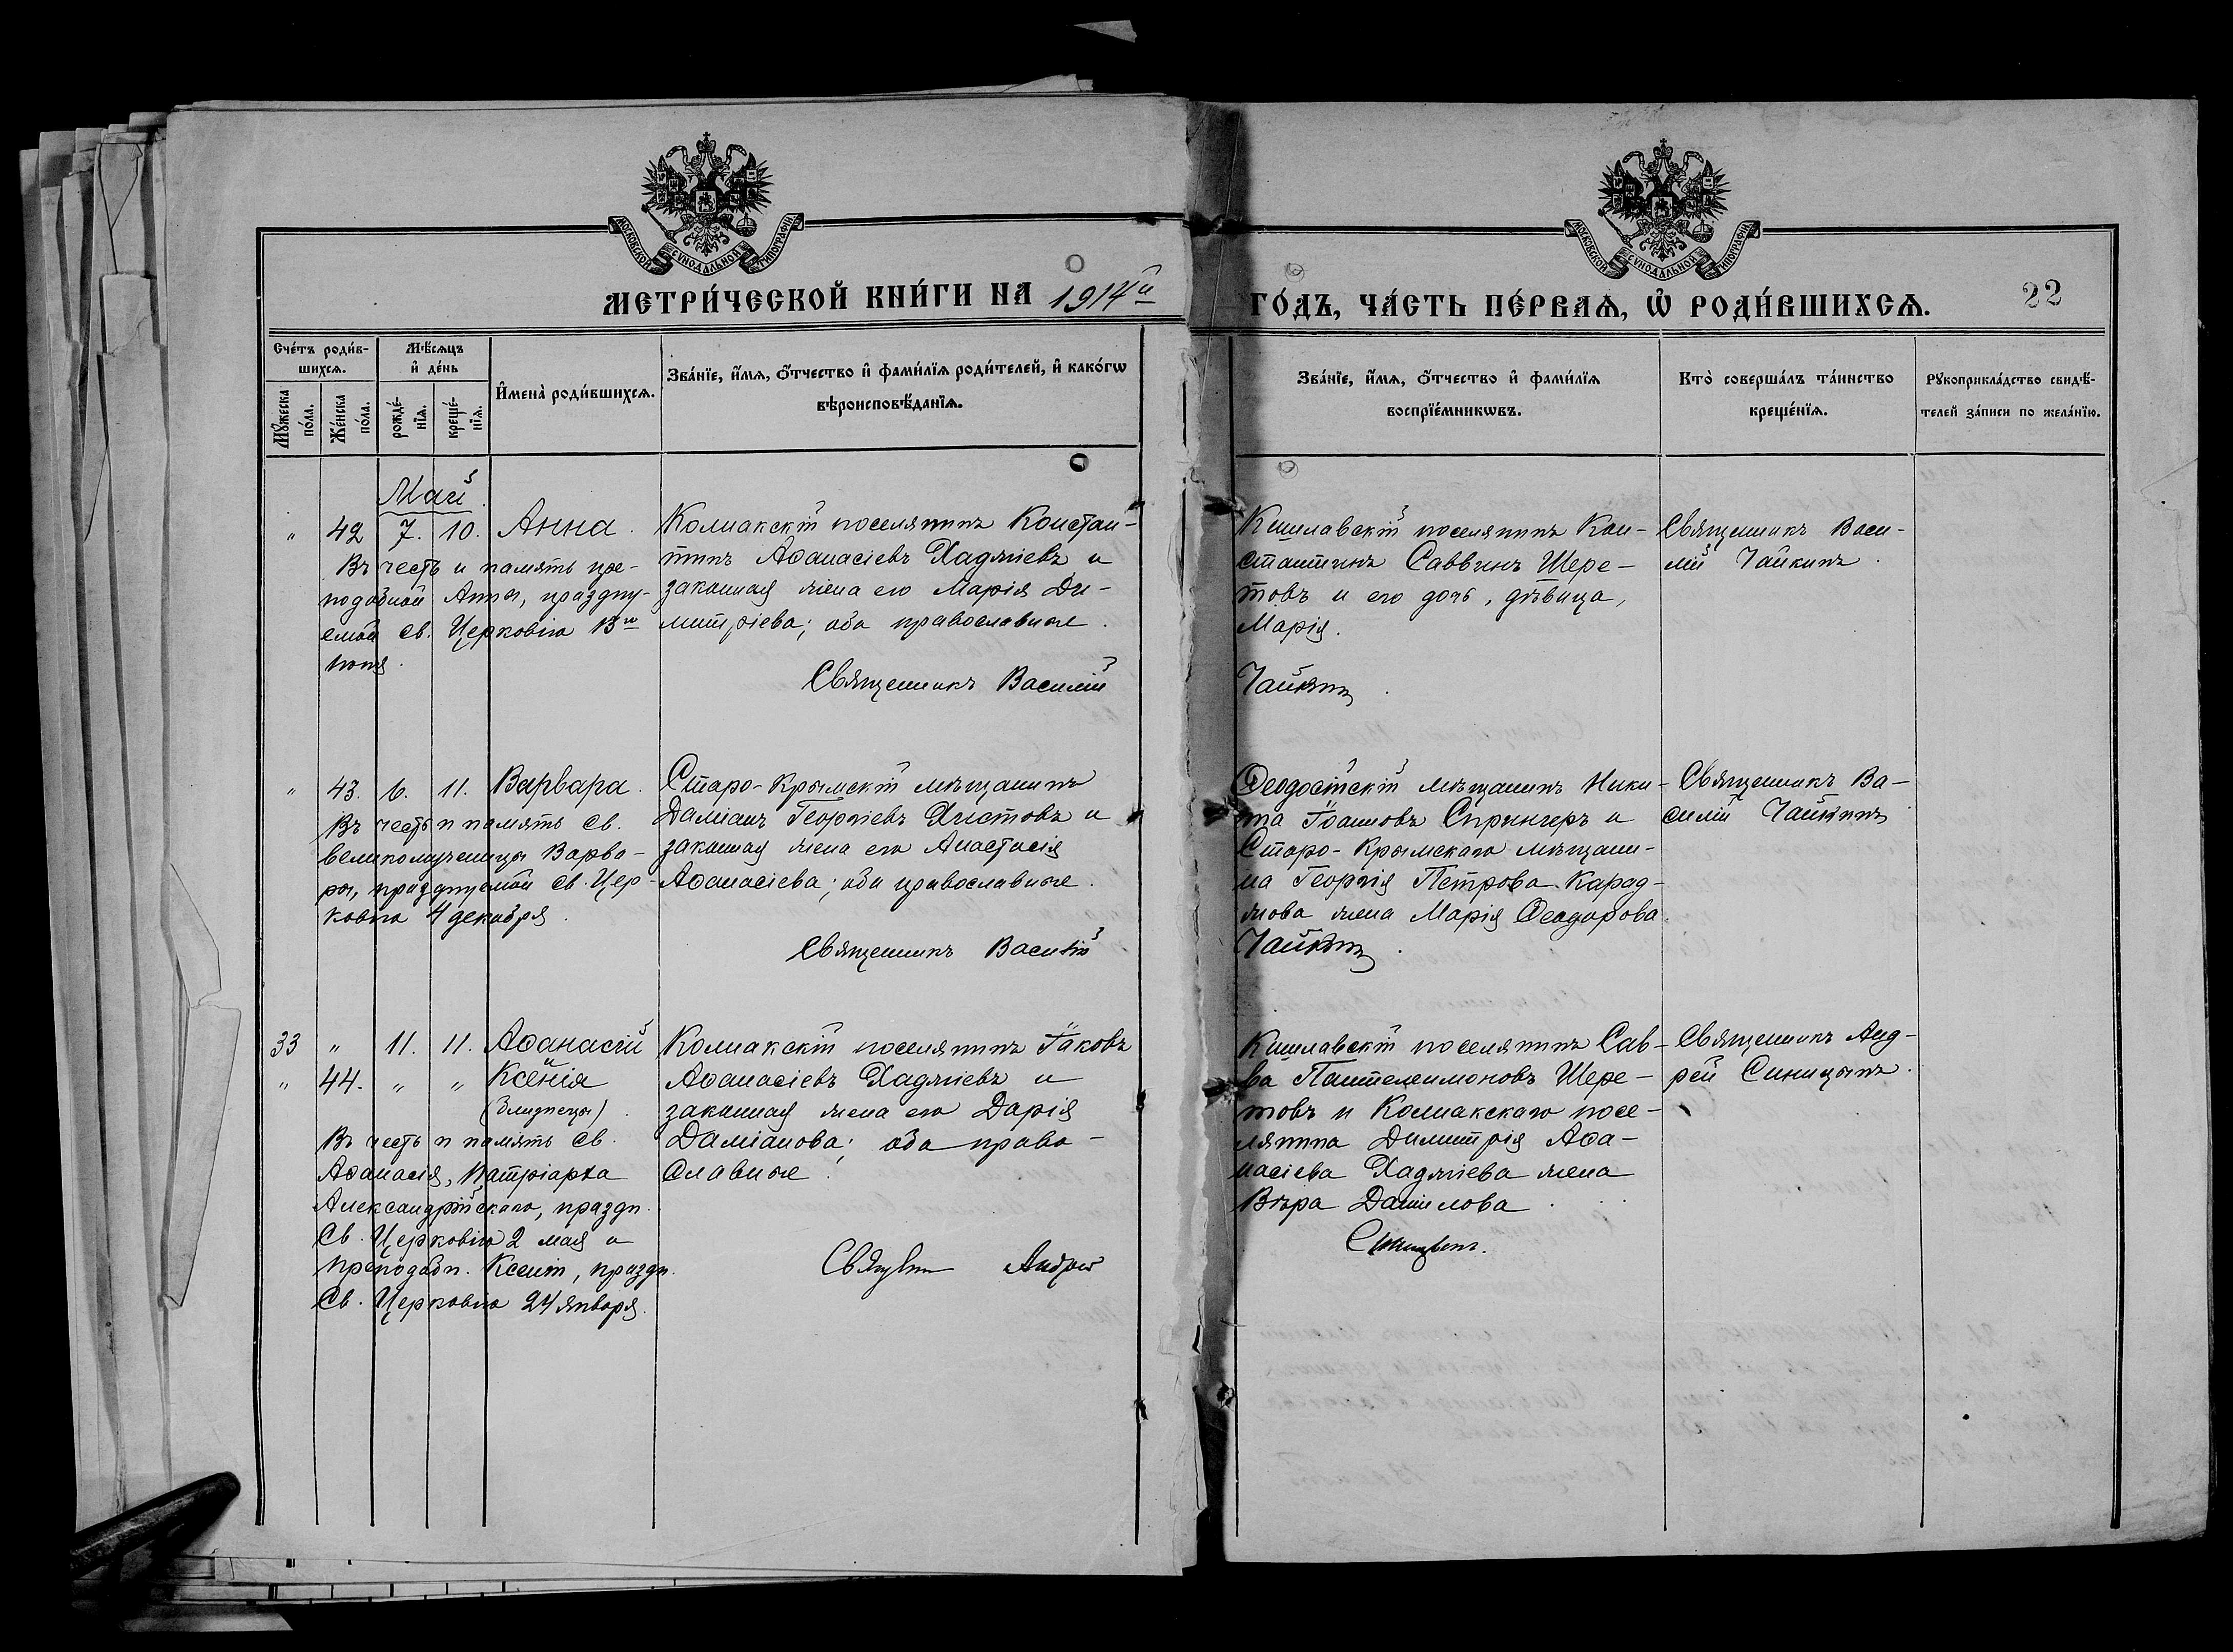 МОСКОВСКОЙ СѴНОДАЛЬНОЙ ТИПОГРАФІИ
МОСКОВСКОЙ СѴНОДАЛЬНОЙ ТИПОГРАФІИ
МЕТРИ́ЧЕСКОЙ КНИ́ГИ НА 1914й
ГО́ДЪ, ЧА́СТЬ ПЕ́РВАѦ, Ѡ҆ РОДИ́ВШИХСѦ.
22
Сче́тъ роди́в-
шихсѧ.
Мѣ́сѧцъ
и҆ де́нь
И҆мена̀ роди́вшихсѧ.
Зва́нїе, и҆́мѧ, ѻ҆́тчество и҆ фами́лїѧ роди́телей, и҆ како́гѡ
вѣроисповѣ́данїѧ.
Мꙋ́жеска
по́ла.
Же́нска
по́ла.
рожде́-
нїѧ.
креще́-
нїѧ.
Зва́нїе, и҆́мѧ, ѻ҆́тчество и҆ фами́лїѧ
воспрїе́мникѡвъ.
Кто̀ соверша́лъ та́инство
креще́нїѧ.
Рꙋкоприкла́дство свидѣ́-
телей за́писи по жела́нїю.
Май
" 42 7. 10. Анна.
Въ честь и память пре-
подобной Анны, праздну-
емой св. Церковію 13го
іюня.
Колпакскій поселянинъ Констан-
тинъ Аѳанасіевъ Хаджіевъ и
законная жена его Марія Ди-
митріева; оба православные.
Священникъ Василій
Кишлавскій поселянинъ Кон-
стантинъ Саввинъ Шере-
товъ и его дочь, дѣвица,
Марія.
Чайкинъ.
Священникъ Васи-
лій Чайкинъ.
" 43. 6. 11. Варвара.
Въ честь и память св.
великомученицы Варва-
ры, празднуемой св. Цер-
ковію 4 декабря.
Старо-Крымскій мѣщанинъ
Даміанъ Георгіевъ Христовъ и
законная жена его Анастасія
Аѳанасіева; оба православные.
Священникъ Василій
Ѳеодосійскій мѣщанинъ Ники-
та Іоанновъ Спрингеръ и
Старо-Крымскаго мѣщани-
на Георгія Петрова Карад-
жова жена Марія Ѳеодорова.
Чайкинъ.
Священникъ Ва-
силій Чайкинъ
33 " 11. 11. Аѳанасій
" 44. " " Ксенія
(близнецы).
Въ честь и память св.
Аѳанасія, патріарха
Александрійскаго, праздн.
Св. Церковію 2 мая и
преподобн. Ксеніи, праздн.
Св. Церковію 24 января.
Колпакскій поселянинъ Іаковъ
Аѳанасіевъ Хаджіевъ и
законная жена его Дарія
Даміанова; оба право-
славные.
Андрей
Кишлавскій поселянинъ Сав-
ва Пантелеимоновъ Шере-
товъ и Колпакскаго посе-
лянина Димитрія Аѳа-
насіева Хаджіева жена
Вѣра Данилова.
Синицынъ.
Священникъ Анд-
рей Синицынъ.